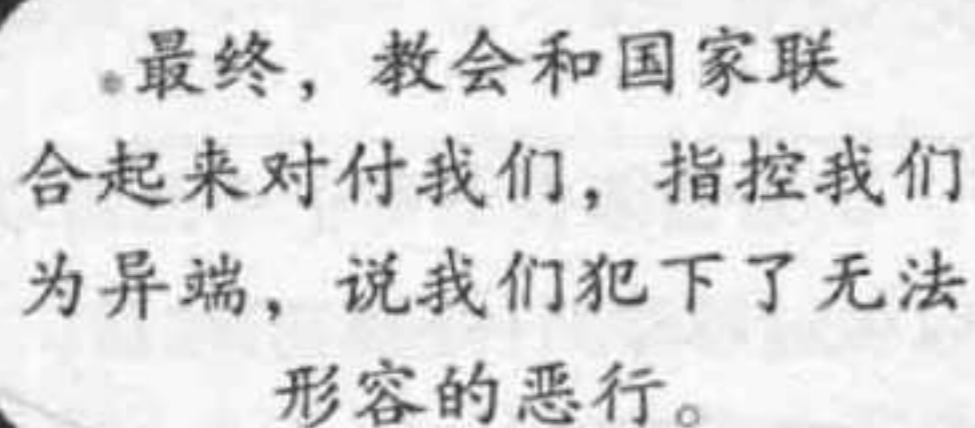 最终，教会和国家联
合起来对付我们，指控我们
为异端，说我们犯下了无法
形容的恶行。